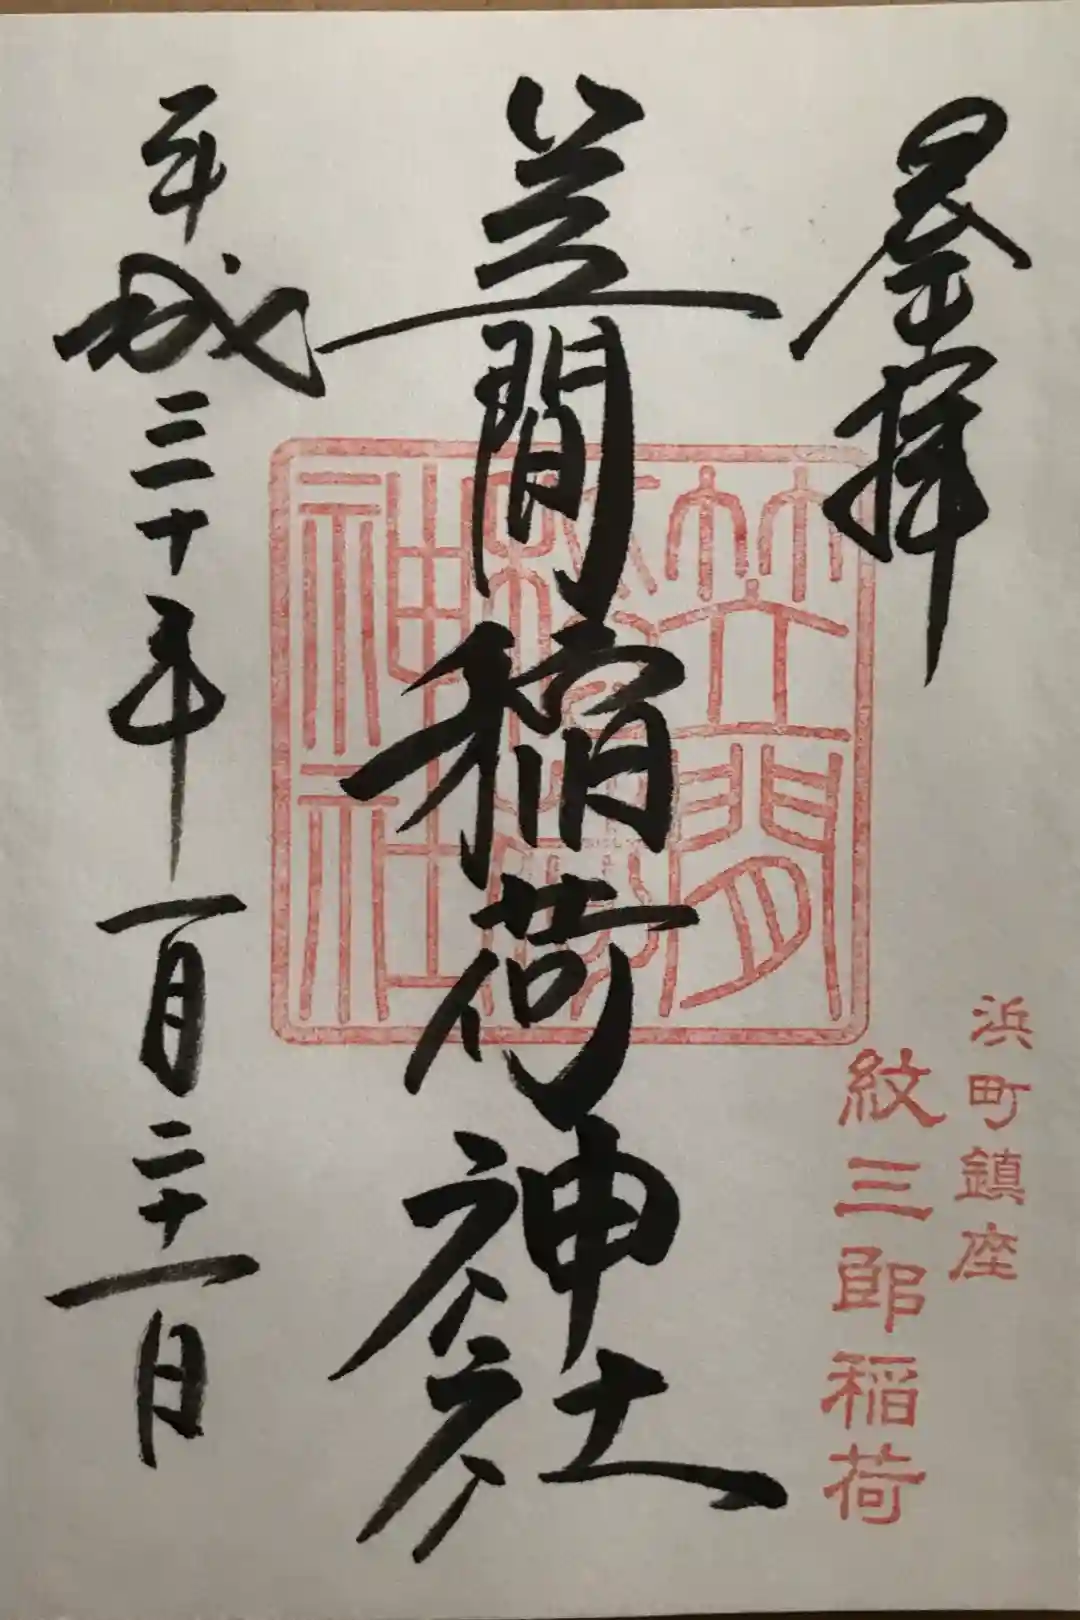 奉拝
浜町鎮座
紋三郎稲荷
笠間稲荷神社
笠間
稲荷
神社
平成三十年一月二十一日